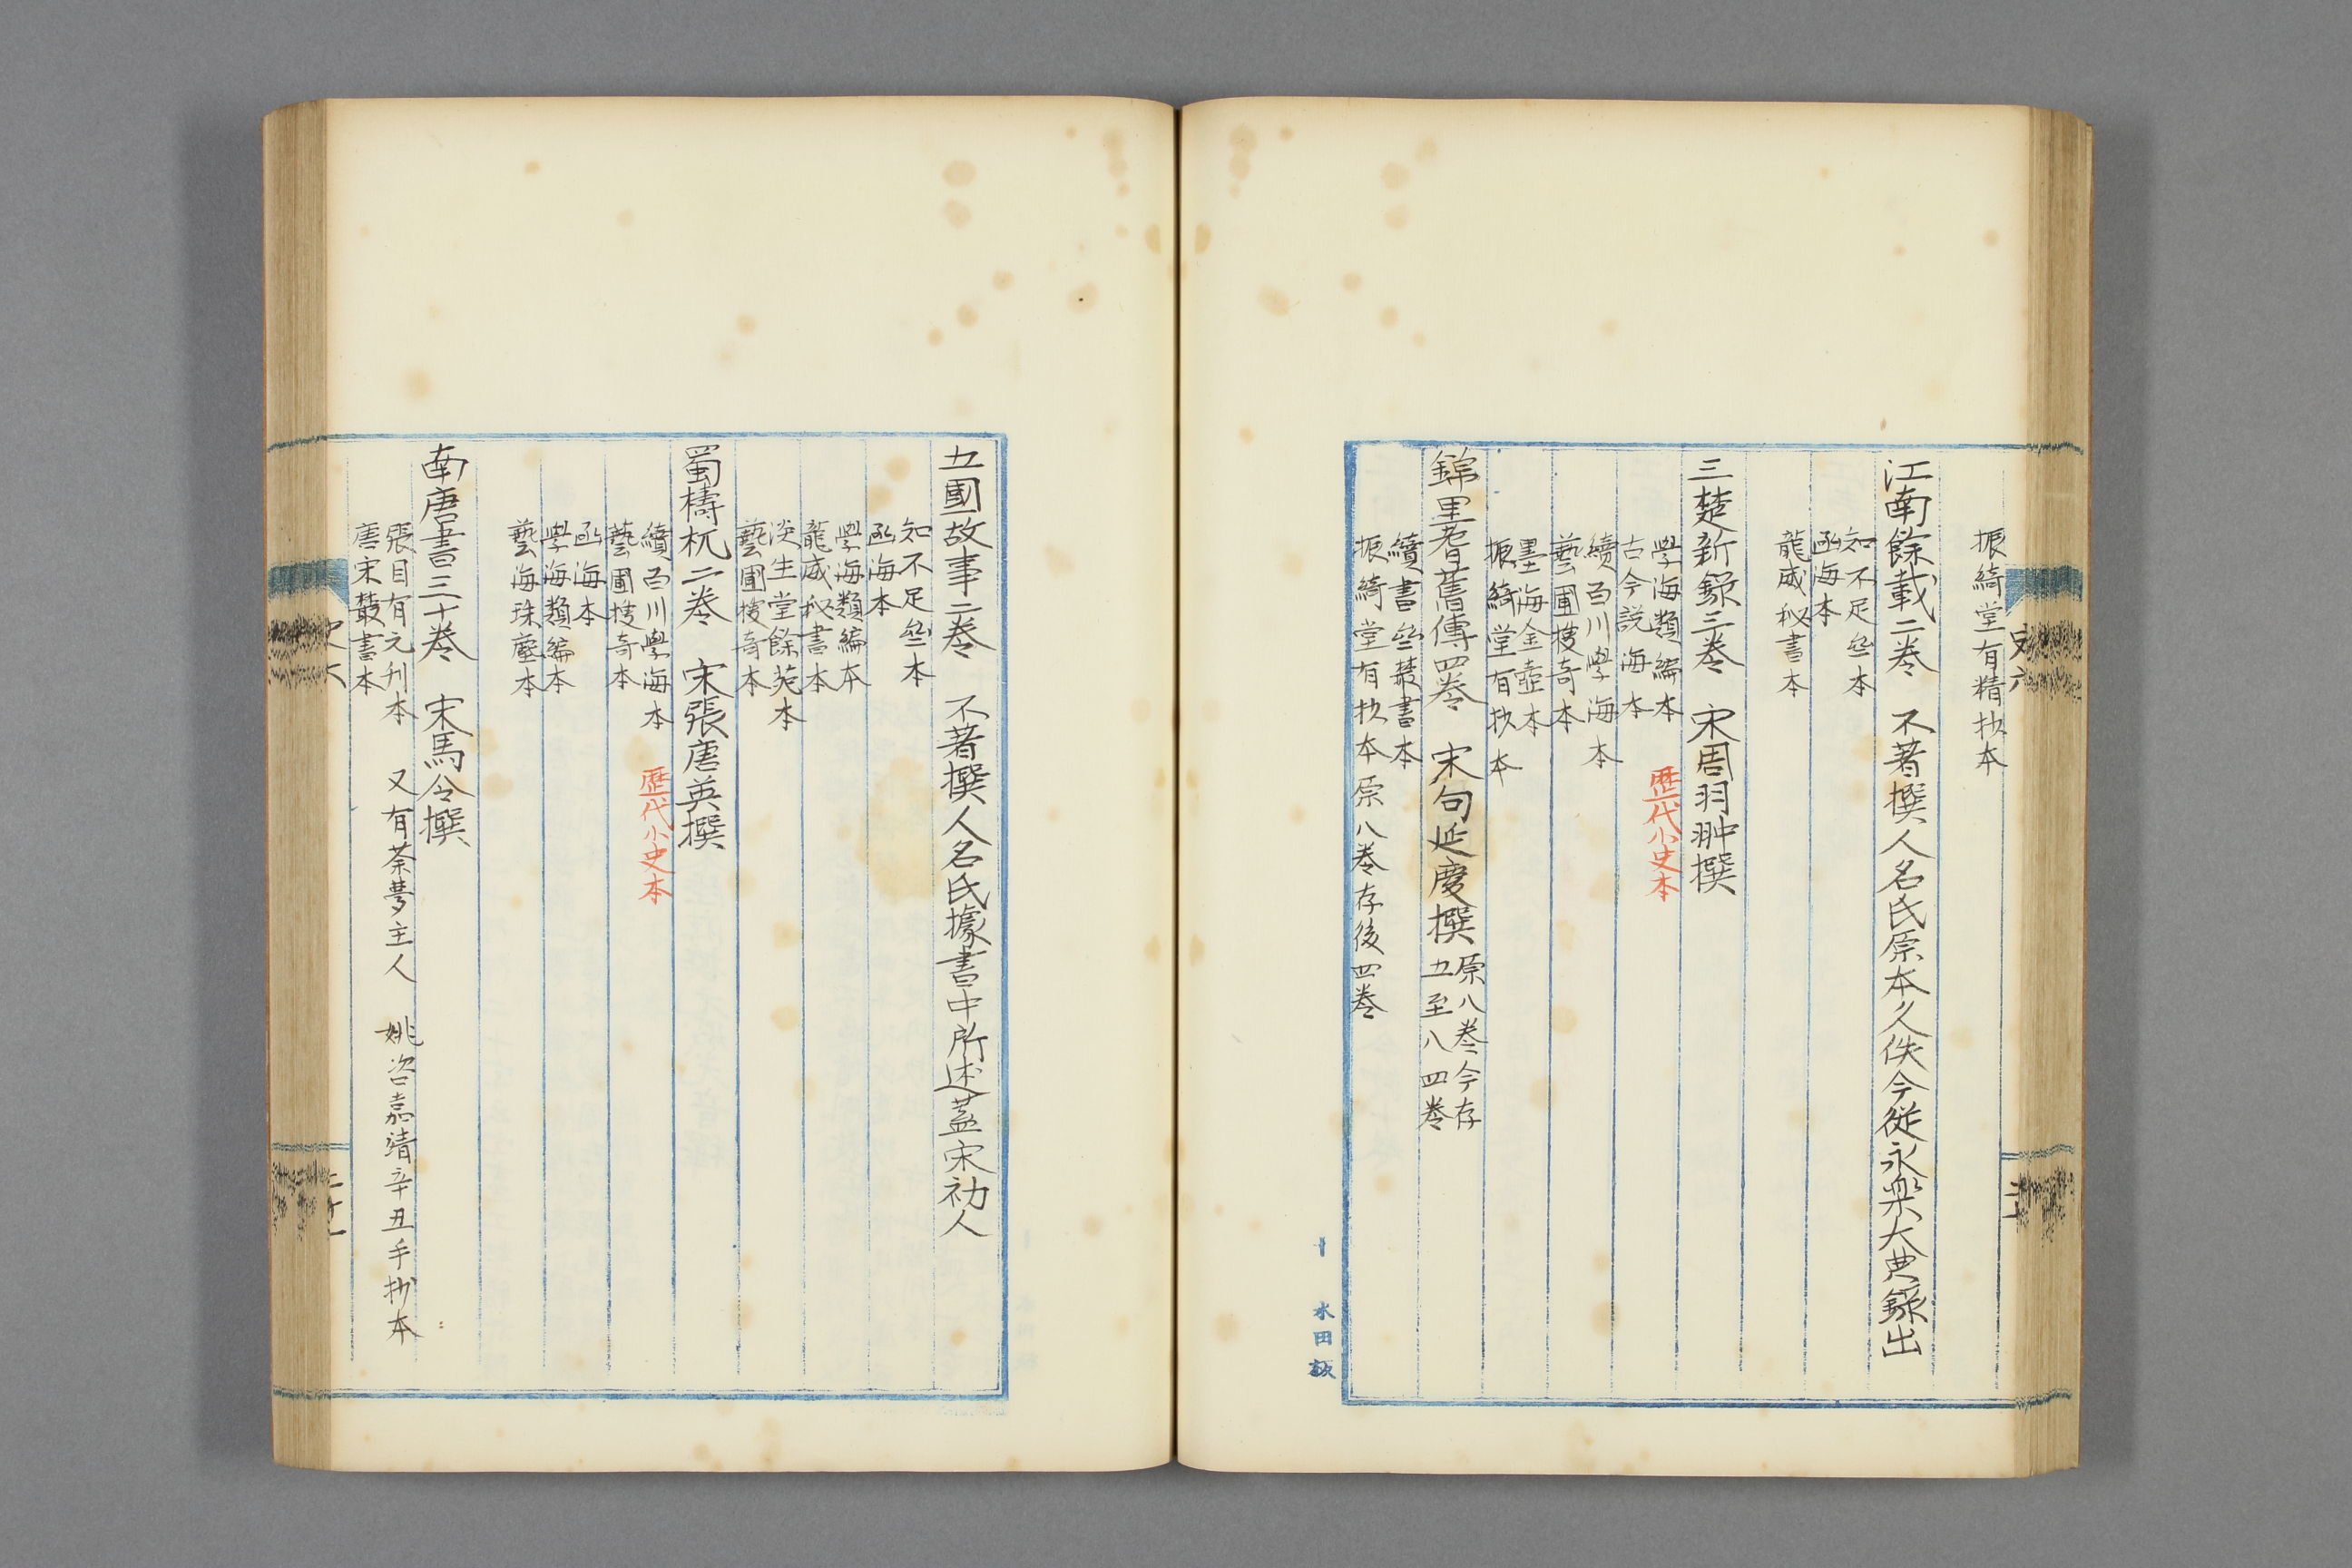 振綺堂有精抄本
江南餘載二卷　不著撰人名氏原本久佚今從永樂大典錄出
知不足叁本
函海本
龍威秘書本
三楚新錄三卷　宋周羽翀撰
學海類編本　歷代小史本
古今説海本
續百川學海本
藝圃搜奇本
墨海金壺本
振綺堂有抄本
錦里耆舊傳四卷　宋句延慶撰　原八卷今存
五至八四卷
續書叁叢書本
振綺堂有抄本原八卷存後四卷
水田敼
史六
五國故事二卷　不著撰人名氏據書中所述蓋宋初人
知不足叁本
函海本
學海類編本
龍威秘書本
淡生堂餘苑本
藝圃搜奇本
蜀檮杌二卷　宋張唐英撰
續百川學海本　歷代小史本
藝圃搜奇本
函海本
學海類編本
藝海珠塵本
南唐書三十卷　宋馬令撰
張目有元刋本　又有荼夢主人　姚咨嘉靖辛丑手抄本
唐宋叢書本